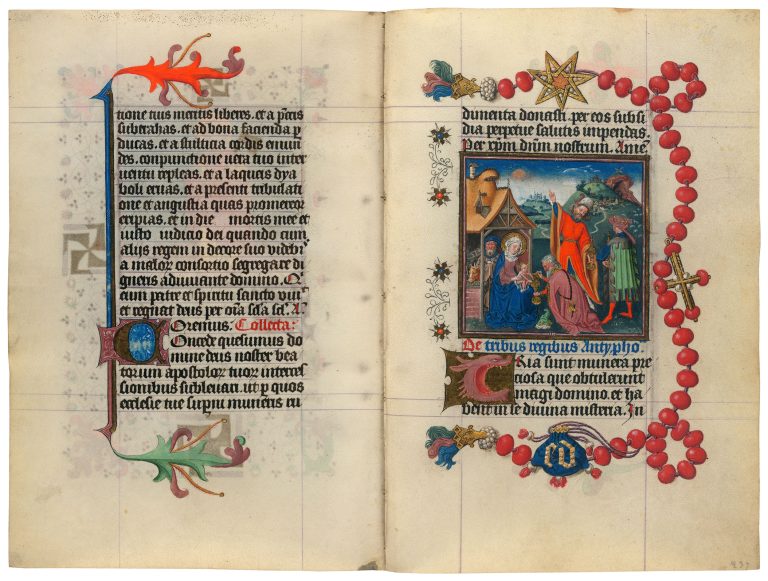 tione tuis meritis liberes. et a pctis
subtrahas. et ad bona facienda p
ducas. et a stulticia cordis emun
des. conpunctione uera tuo inter
uentu repleas. et a laqueis dya
boli eruas. et a presenti tribulati
one et angustia quas promereor
eripias. et in die mortis mee et
iusto iudicio dei quando cum
alijs regem in decore suo videbi
a maloꝝ consortio segregare di
gneris adiuuante domino. Q
cum patre et spiritu sancto viuit
et regnat deus per om̄a sc̄la scl. A
Oremus. Collecta:
Concede quesumus do
mine deus noster bea
torium apostoloꝝ tuoꝝ interces
sionibus subleuari. ut p quos
ecclesie tue superni muneris ru
dimenta donasti. per eos subsi
dia perpetue salutis inpendas.
Per xpm dnm nostrum. Ame
De tribus regibus Antypho.
Tria sunt munera pre
ciosa que obtulerunt
magi domino. et ha
bent in se diuina misteria. In